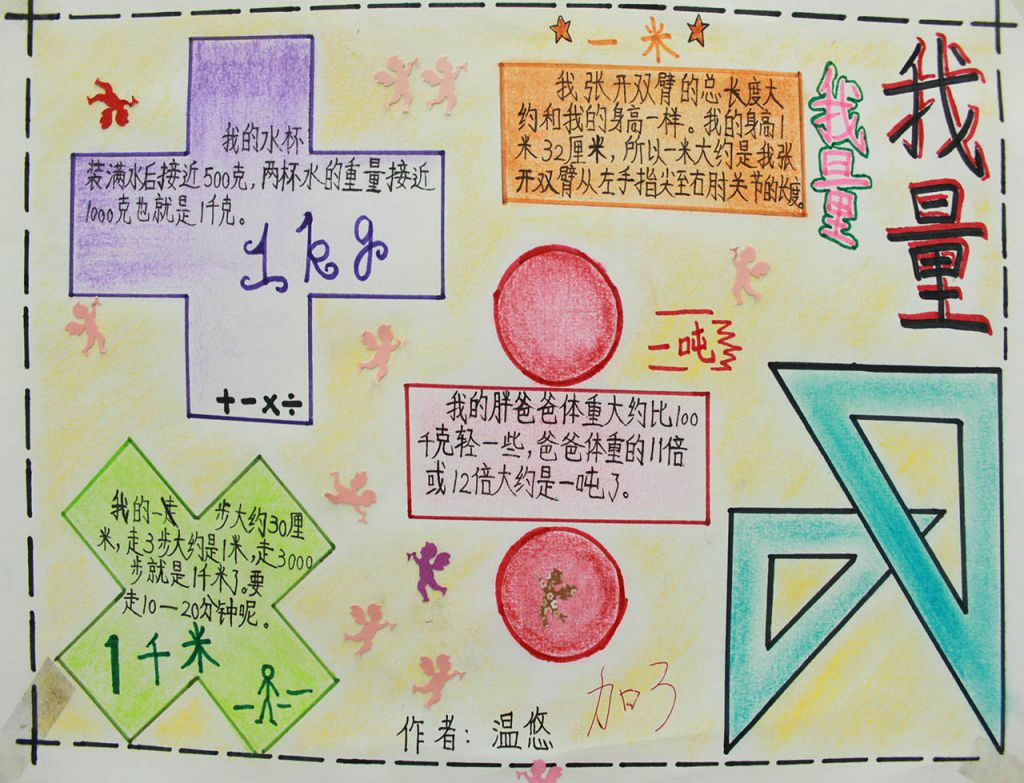 我量
我量
一米
我张开双臂的总长度大
约和我的身高一样。我的身高1
米32厘米，所以一米大约是我张
开双臂从左手指尖至右肘关节的长度。
我的水杯
装满水后接近500克，两杯水的重量接近
1000克也就是1千克。
1kg
+-×÷
一吨
我的胖爸爸体重大约比100
千克轻一些，爸爸体重的11倍
或12倍大约是一吨了。
我的一 步大约30厘
米，走3步大约是1米，走3000
步就是1千米了。要
走10—20分钟呢。
1千米
作者：温悠